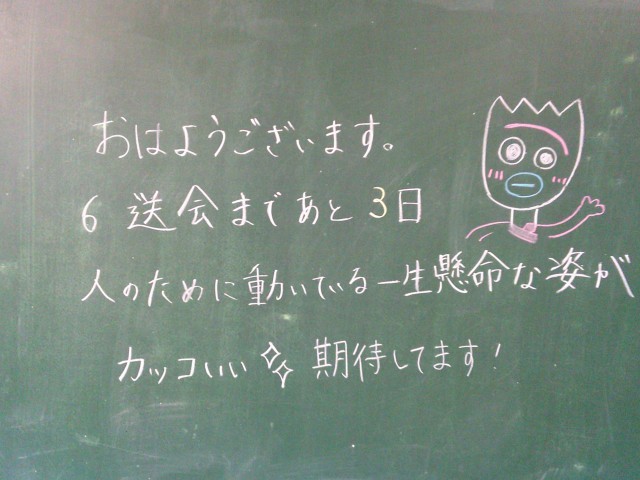 おはようございます。
6送会まであと3日
人のために動いている一生懸命な姿が
カッコいい 期待してます!